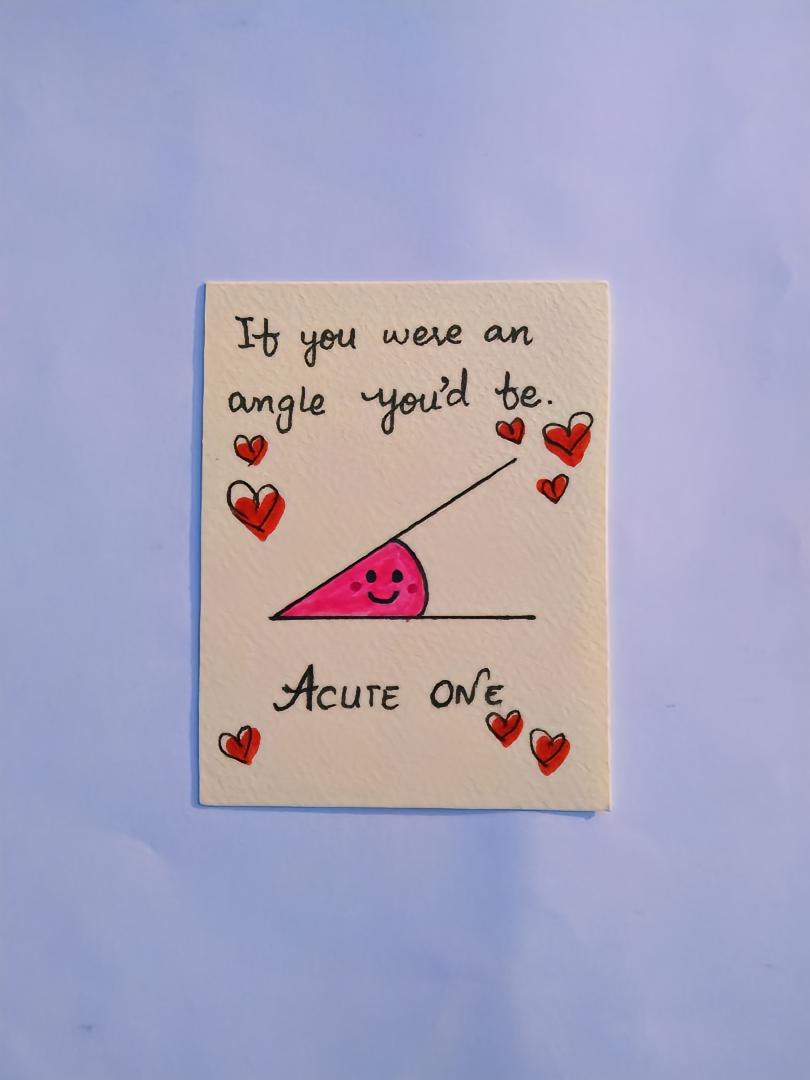 If you were an
angle you'd be.
ACUTE ONE